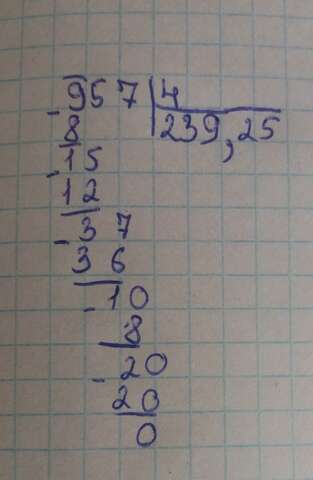 957 4
- 8 239,25
15
- 12
37
- 36
10
- 8
20
- 20
0